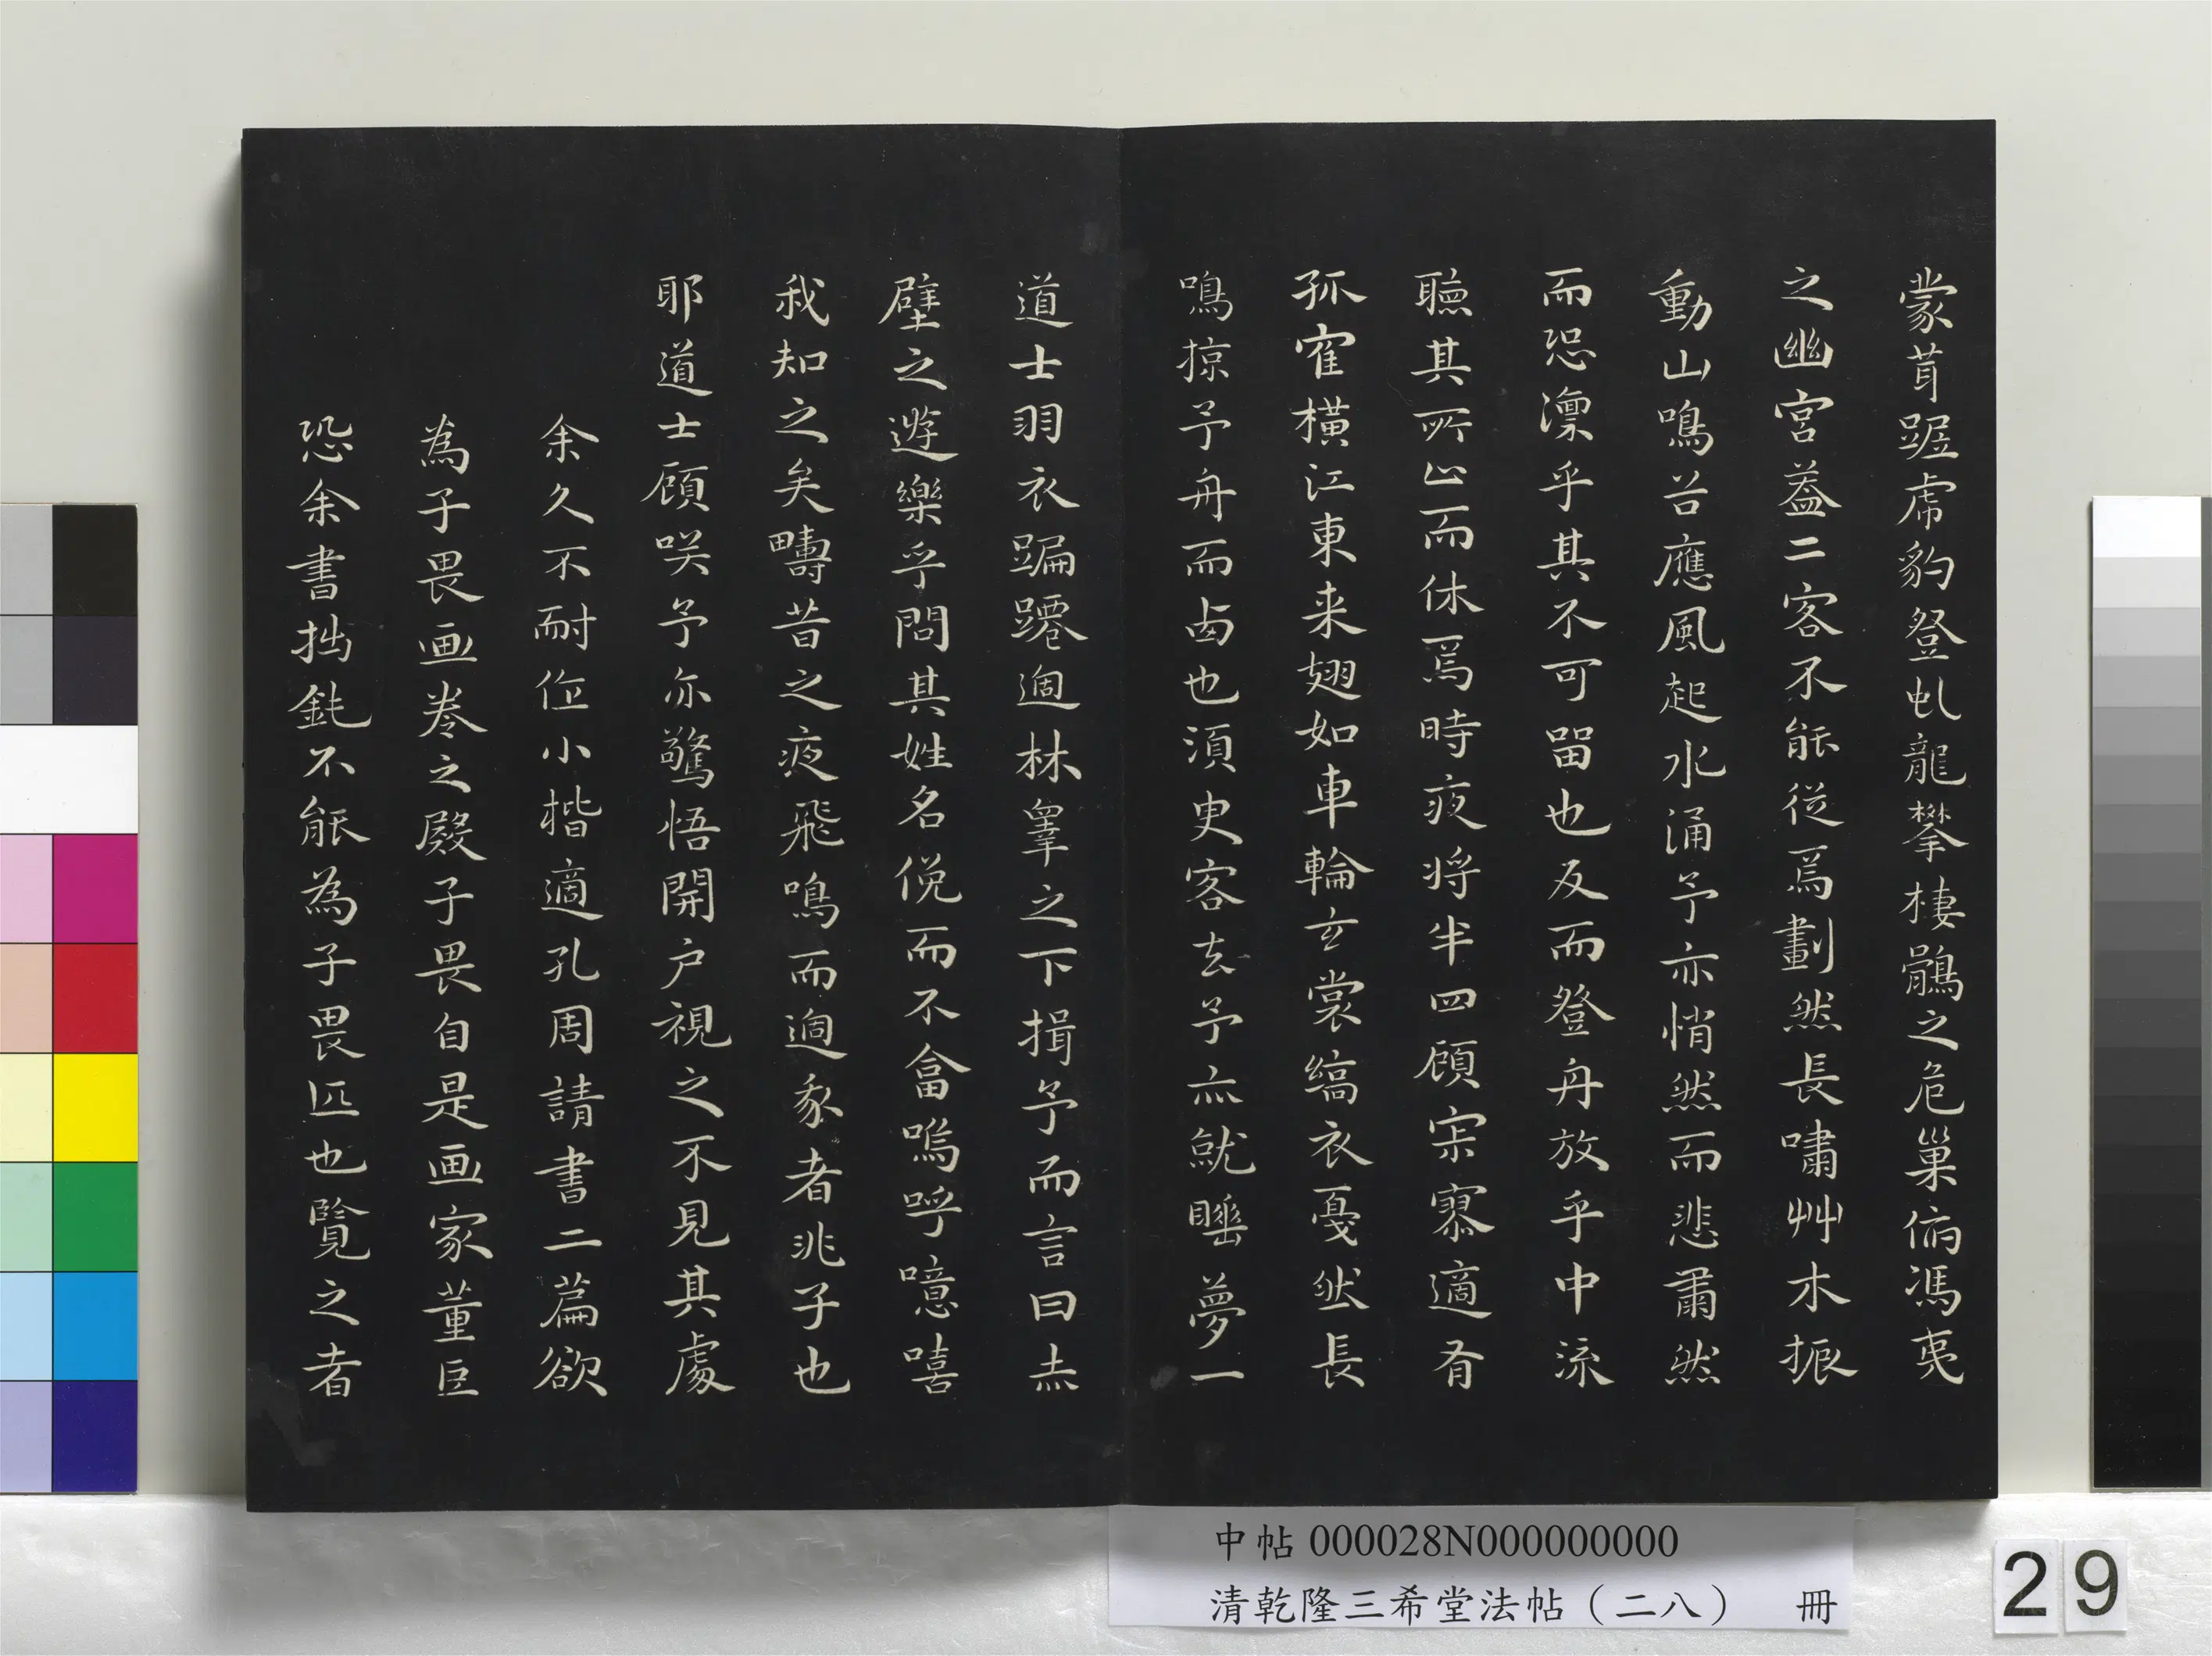 蒙茸踞虎豹登虬龍攀栖鶻之危巢俯馮夷
之幽宮蓋二客不能從焉劃然長嘯艸木振
動山鳴谷應風起水涌予亦悄然而悲肅然
而恐凜乎其不可留也反而登舟放乎中流
聽其所止而休焉時夜将半四顧宗寥適有
孤隺橫江東来翅如車輪玄裳縞衣戞然長
鳴掠予舟而西也須臾客去予亦就睡夢一
道士羽衣蹁躚過林睪之下揖予而言曰赤
壁之遊樂乎問其姓名俛而不畣嗚呼噫嘻
我知之矣疇昔之夜飛鳴而過我者非子也
耶道士顧咲予亦驚悟開户視之不見其處
余久不耐作小楷適孔周請書二篇欲
為子畏画卷之殿子畏自是画家董巨
恐余書拙鈍不能為子畏匹也覽之者
中帖 000028N000000000
清乾隆三希堂法帖（二八） 冊
29